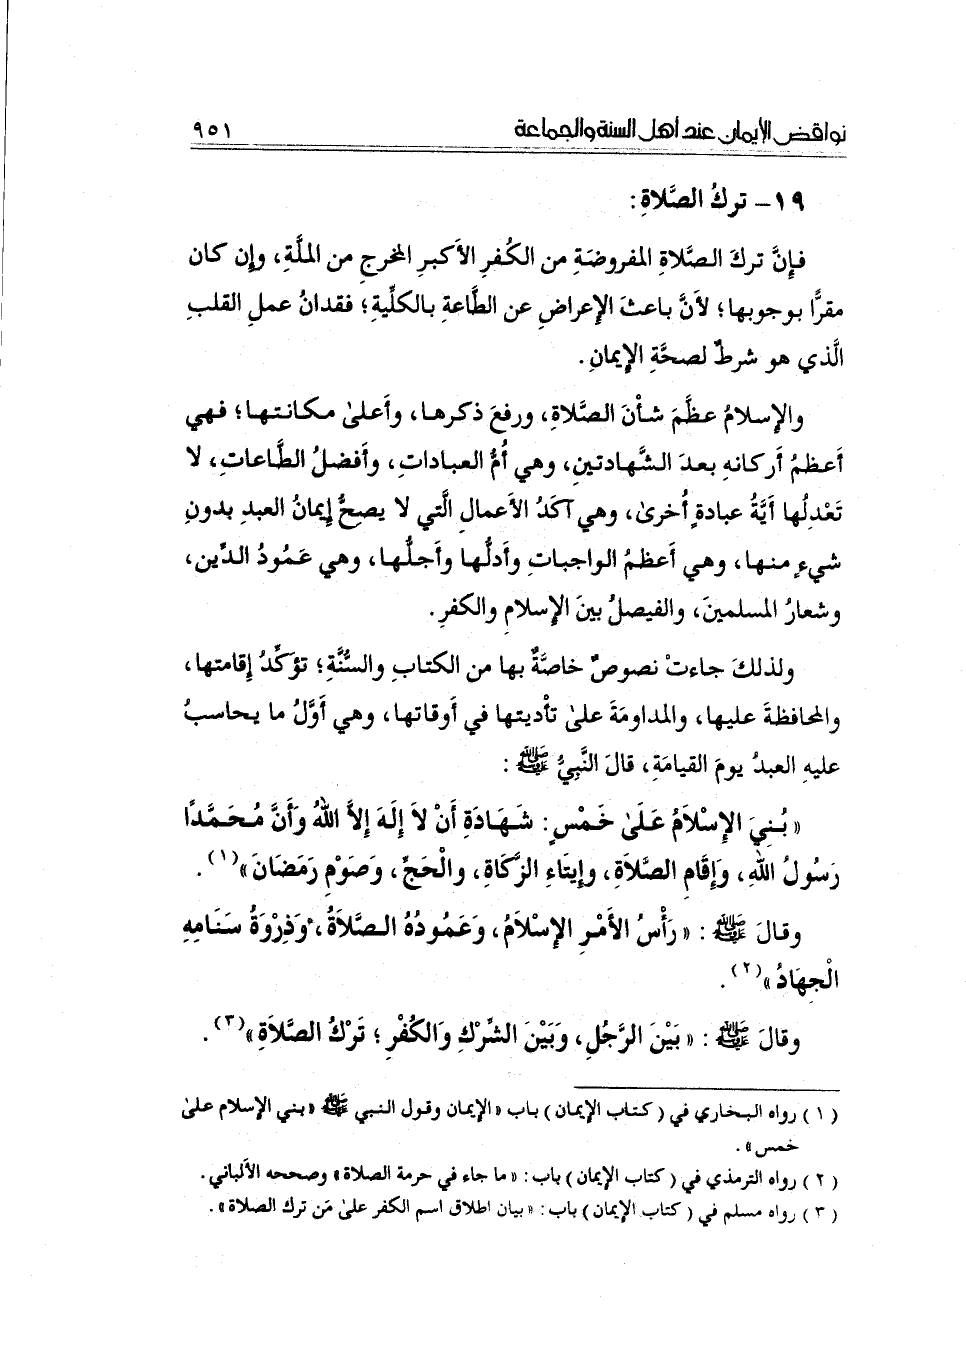 نواقض الإيمان عند أهل السنة والجماعة
٩٥١
١٩ - تركُ الصَّلاةِ:
فإنَّ تركَ الصَّلاةِ المفروضَةِ من الكُفرِ الأَكبرِ المخرجِ من الملَّةِ، وإن كان
مقرًّا بوجوبها؛ لأنَّ باعثَ الإعراضِ عن الطَّاعةِ بالكلِّيةِ؛ فقدانُ عملِ القلبِ
الَّذي هو شرطٌ لصحَّةِ الإيمانِ.
والإسلامُ عظَّمَ شأنَ الصَّلاةِ، ورفعَ ذكرها، وأَعلىٰ مكانتها؛ فهي
أَعظمُ أركانهِ بعدَ الشَّهادتينِ، وهي أُمُّ العبادات، وأَفضلُ الطَّاعات، لا
تَعْدلُها أيَّةُ عبادةٍ أُخرىٰ، وهي آكدُ الأعمالِ الَّتي لا يصحُّ إيمانُ العبدِ بدونِ
شيءٍ منها، وهي أعظمُ الواجباتِ وأدلُّها وأجلُّها، وهي عَمُودُ الدِّين،
وشعارُ المسلمينَ، والفيصلُ بينَ الإسلامِ والكفرِ.
ولذلكَ جاءتْ نصوصٌ خاصَّةٌ بها من الكتابِ والسُّنَّةِ؛ تؤكِّدُ إقامتها،
والمحافظةَ عليها، والمداومَةَ علىٰ تأديتها في أوقاتها، وهي أوَّلُ ما يحاسبُ
عليهِ العبدُ يومَ القيامَةِ، قالَ النَّبيُّ ﷺ :
« بُنِيَ الإِسْلاَمُ عَلَىٰ خَمْسٍ: شَهَادَةِ أَنْ لاَ إِلَهَ إِلاَّ اللهُ وَأَنَّ مُحَمَّدًا
رَسُولُ اللهِ، وَإِقَامِ الصَّلاَةِ، وإِيتَاءِ الزَّكَاةِ، والْحَجِّ، وَصَوْمِ رَمَضَانَ»(١).
وقالَ ﷺ : « رَأْسُ الأَمْرِ الإِسْلاَمُ، وَعَمُودُهُ الصَّلاَةُ، وَذِرْوَةُ سَنَامِهِ
الْجِهَادُ»(٢).
وقالَ ﷺ : « بَيْنَ الرَّجُلِ، وَبَيْنَ الشِّرْكِ وَالكُفْرِ؛ تَرْكُ الصَّلاَةِ»(٣).
( ١ ) رواه البخاري في ( كتاب الإيمان ) باب « الإيمان وقول النبي ﷺ « بني الإسلام علىٰ
خمس» .
( ٢ ) رواه الترمذي في ( كتاب الإيمان ) باب : « ما جاء في حرمة الصلاة» وصححه الألباني.
( ٣ ) رواه مسلم في ( كتاب الإيمان ) باب : « بيان اطلاق اسم الكفر علىٰ مَن ترك الصلاة ».